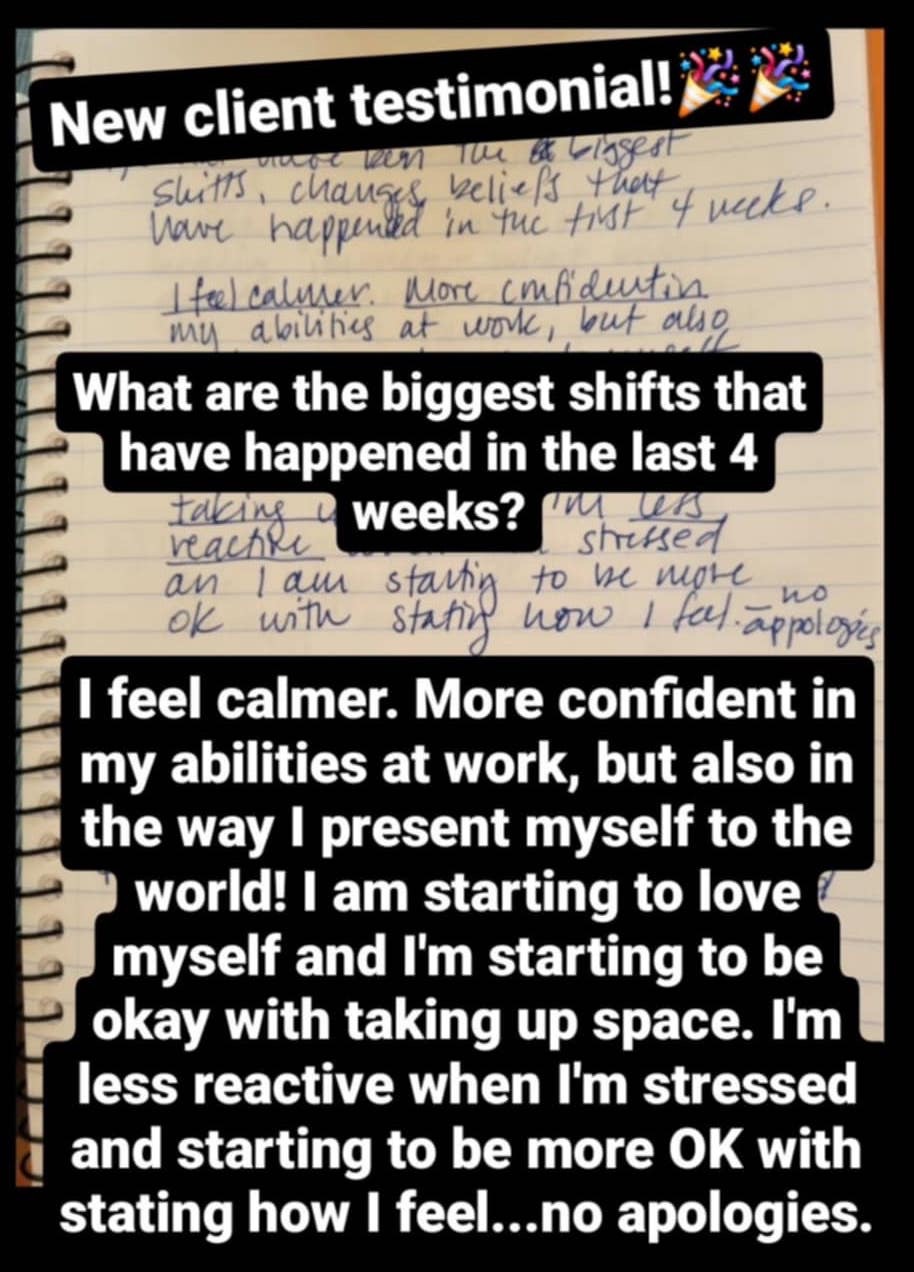 New client testimonial!🎉🎉
been the biggest
shifts, changes, beliefs that
have happened in the first 4 weeks.
I feel calmer. More confident in
my abilities at work, but also
What are the biggest shifts that
have happened in the last 4
weeks?
taking I'm less
reactive stressed
an I am starting to be more
ok with stating how I feel. – no
appologies
I feel calmer. More confident in
my abilities at work, but also in
the way I present myself to the
world! I am starting to love
myself and I'm starting to be
okay with taking up space. I'm
less reactive when I'm stressed
and starting to be more OK with
stating how I feel...no apologies.